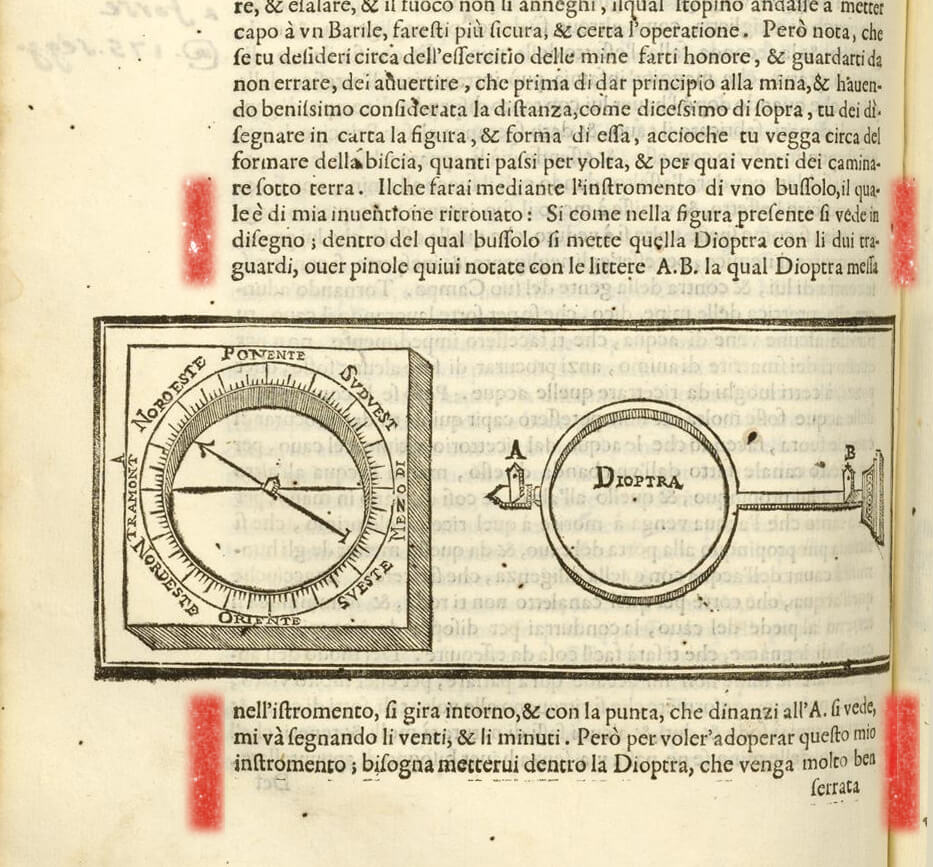 re, & esalare, & il fuoco non li anneghi, ilqual stopino andasse a metter
capo à vn Barile, faresti più sicura, & certa l'operatione. Però nota, che
se tu desideri circa dell'essercitio delle mine farti honore, & guardarti da
non errare, dei aduertire, che prima di dar principio alla mina, & hauen-
do benissimo considerata la distanza, come dicessimo di sopra, tu dei di-
segnare in carta la figura, & forma di essa, accioche tu vegga circa del
formare della biscia, quanti passi per volta, & per quai venti dei camina-
re sotto terra. Ilche farai mediante l'instromento di vno bussolo, il qua-
le è di mia inuentione ritrouato: Si come nella figura presente si vede in
disegno; dentro del qual bussolo si mette quella Dioptra con li dui tra-
guardi, ouer pinole quiui notate con le littere A.B. la qual Dioptra messa
PONENTE
NOROESTE
SVDVEST
TRAMONTA
MEZO DI
NORDESTE
SVESTE
ORIENTE
A
DIOPTRA
B
nell'istromento, si gira intorno, & con la punta, che dinanzi all'A. si vede,
mi và segnando li venti, & li minuti. Però per voler'adoperar questo mio
instromento; bisogna metterui dentro la Dioptra, che venga molto ben
serrata